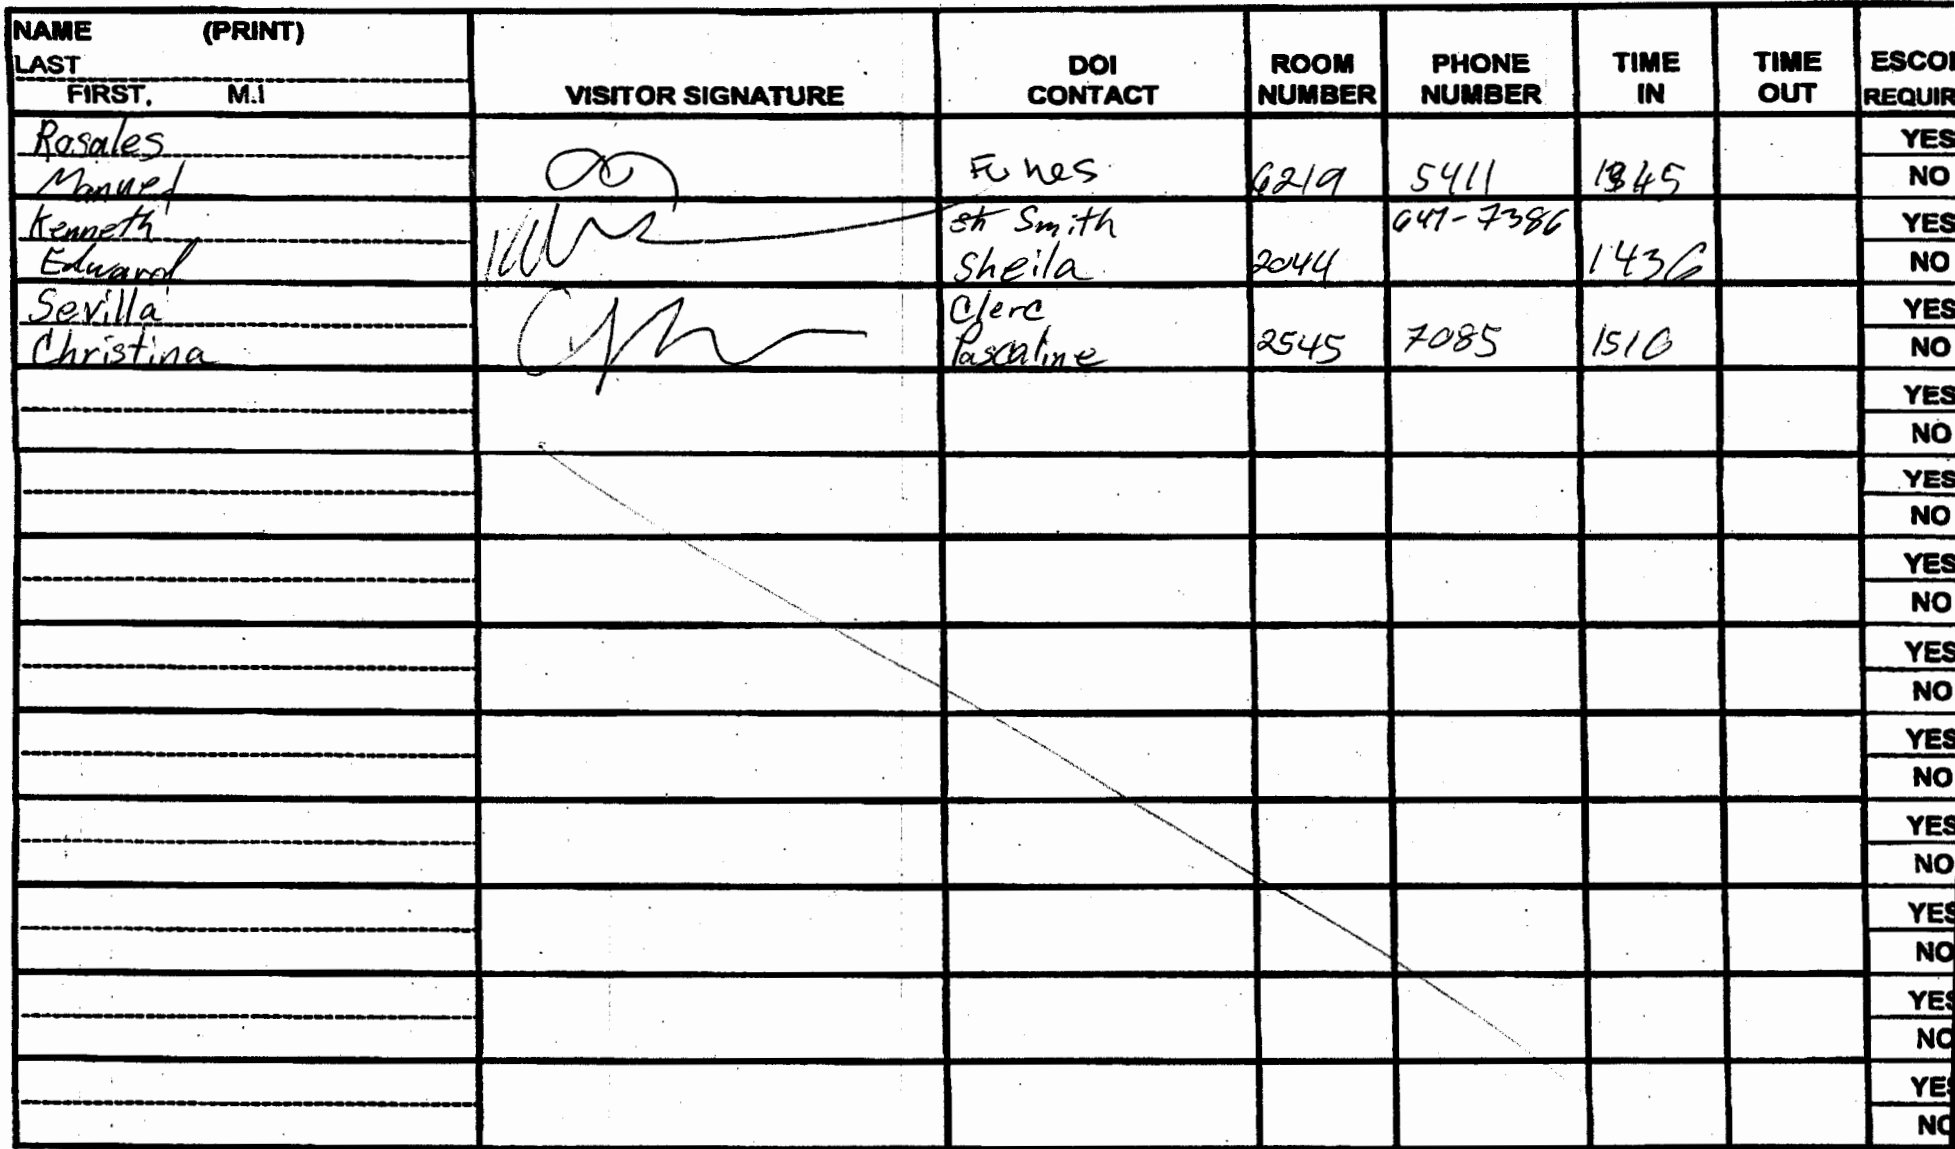 NAME (PRINT)
LAST
FIRST, M.I
VISITOR SIGNATURE
DOI
CONTACT
ROOM
NUMBER
PHONE
NUMBER
TIME
IN
TIME
OUT
ESCOR
REQUIR
Rosales
Manuel
Funes
6219
5411
1345
YES
NO
Kenneth
Edward
Smith
Sheila
2044
647-7386
1436
YES
NO
Sevilla
Christina
Clerc
Pascaline
2545
7085
1510
YES
NO
YES
NO
YES
NO
YES
NO
YES
NO
YES
NO
YES
NO
YES
NO
YES
NO
YES
NO